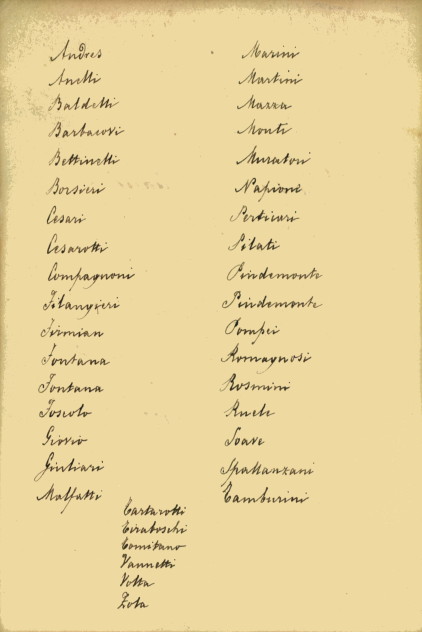 Andres
Anelli
Baldelli
Barbacovi
Bettinelli
Borsieri
Cesari
Cesarotti
Compagnoni
Filangieri
Firmian
Fontana
Fontana
Foscolo
Giovio
Giuliari
Malfatti
Marini
Martini
Mazza
Monti
Muratori
Napioni
Perticari
Pilati
Pindemonte
Pindemonte
Pompei
Romagnosi
Rosmini
Ruele
Soave
Spallanzani
Tamburini
Tartarotti
Tiraboschi
Tomitano
Vannetti
Volta
Zola